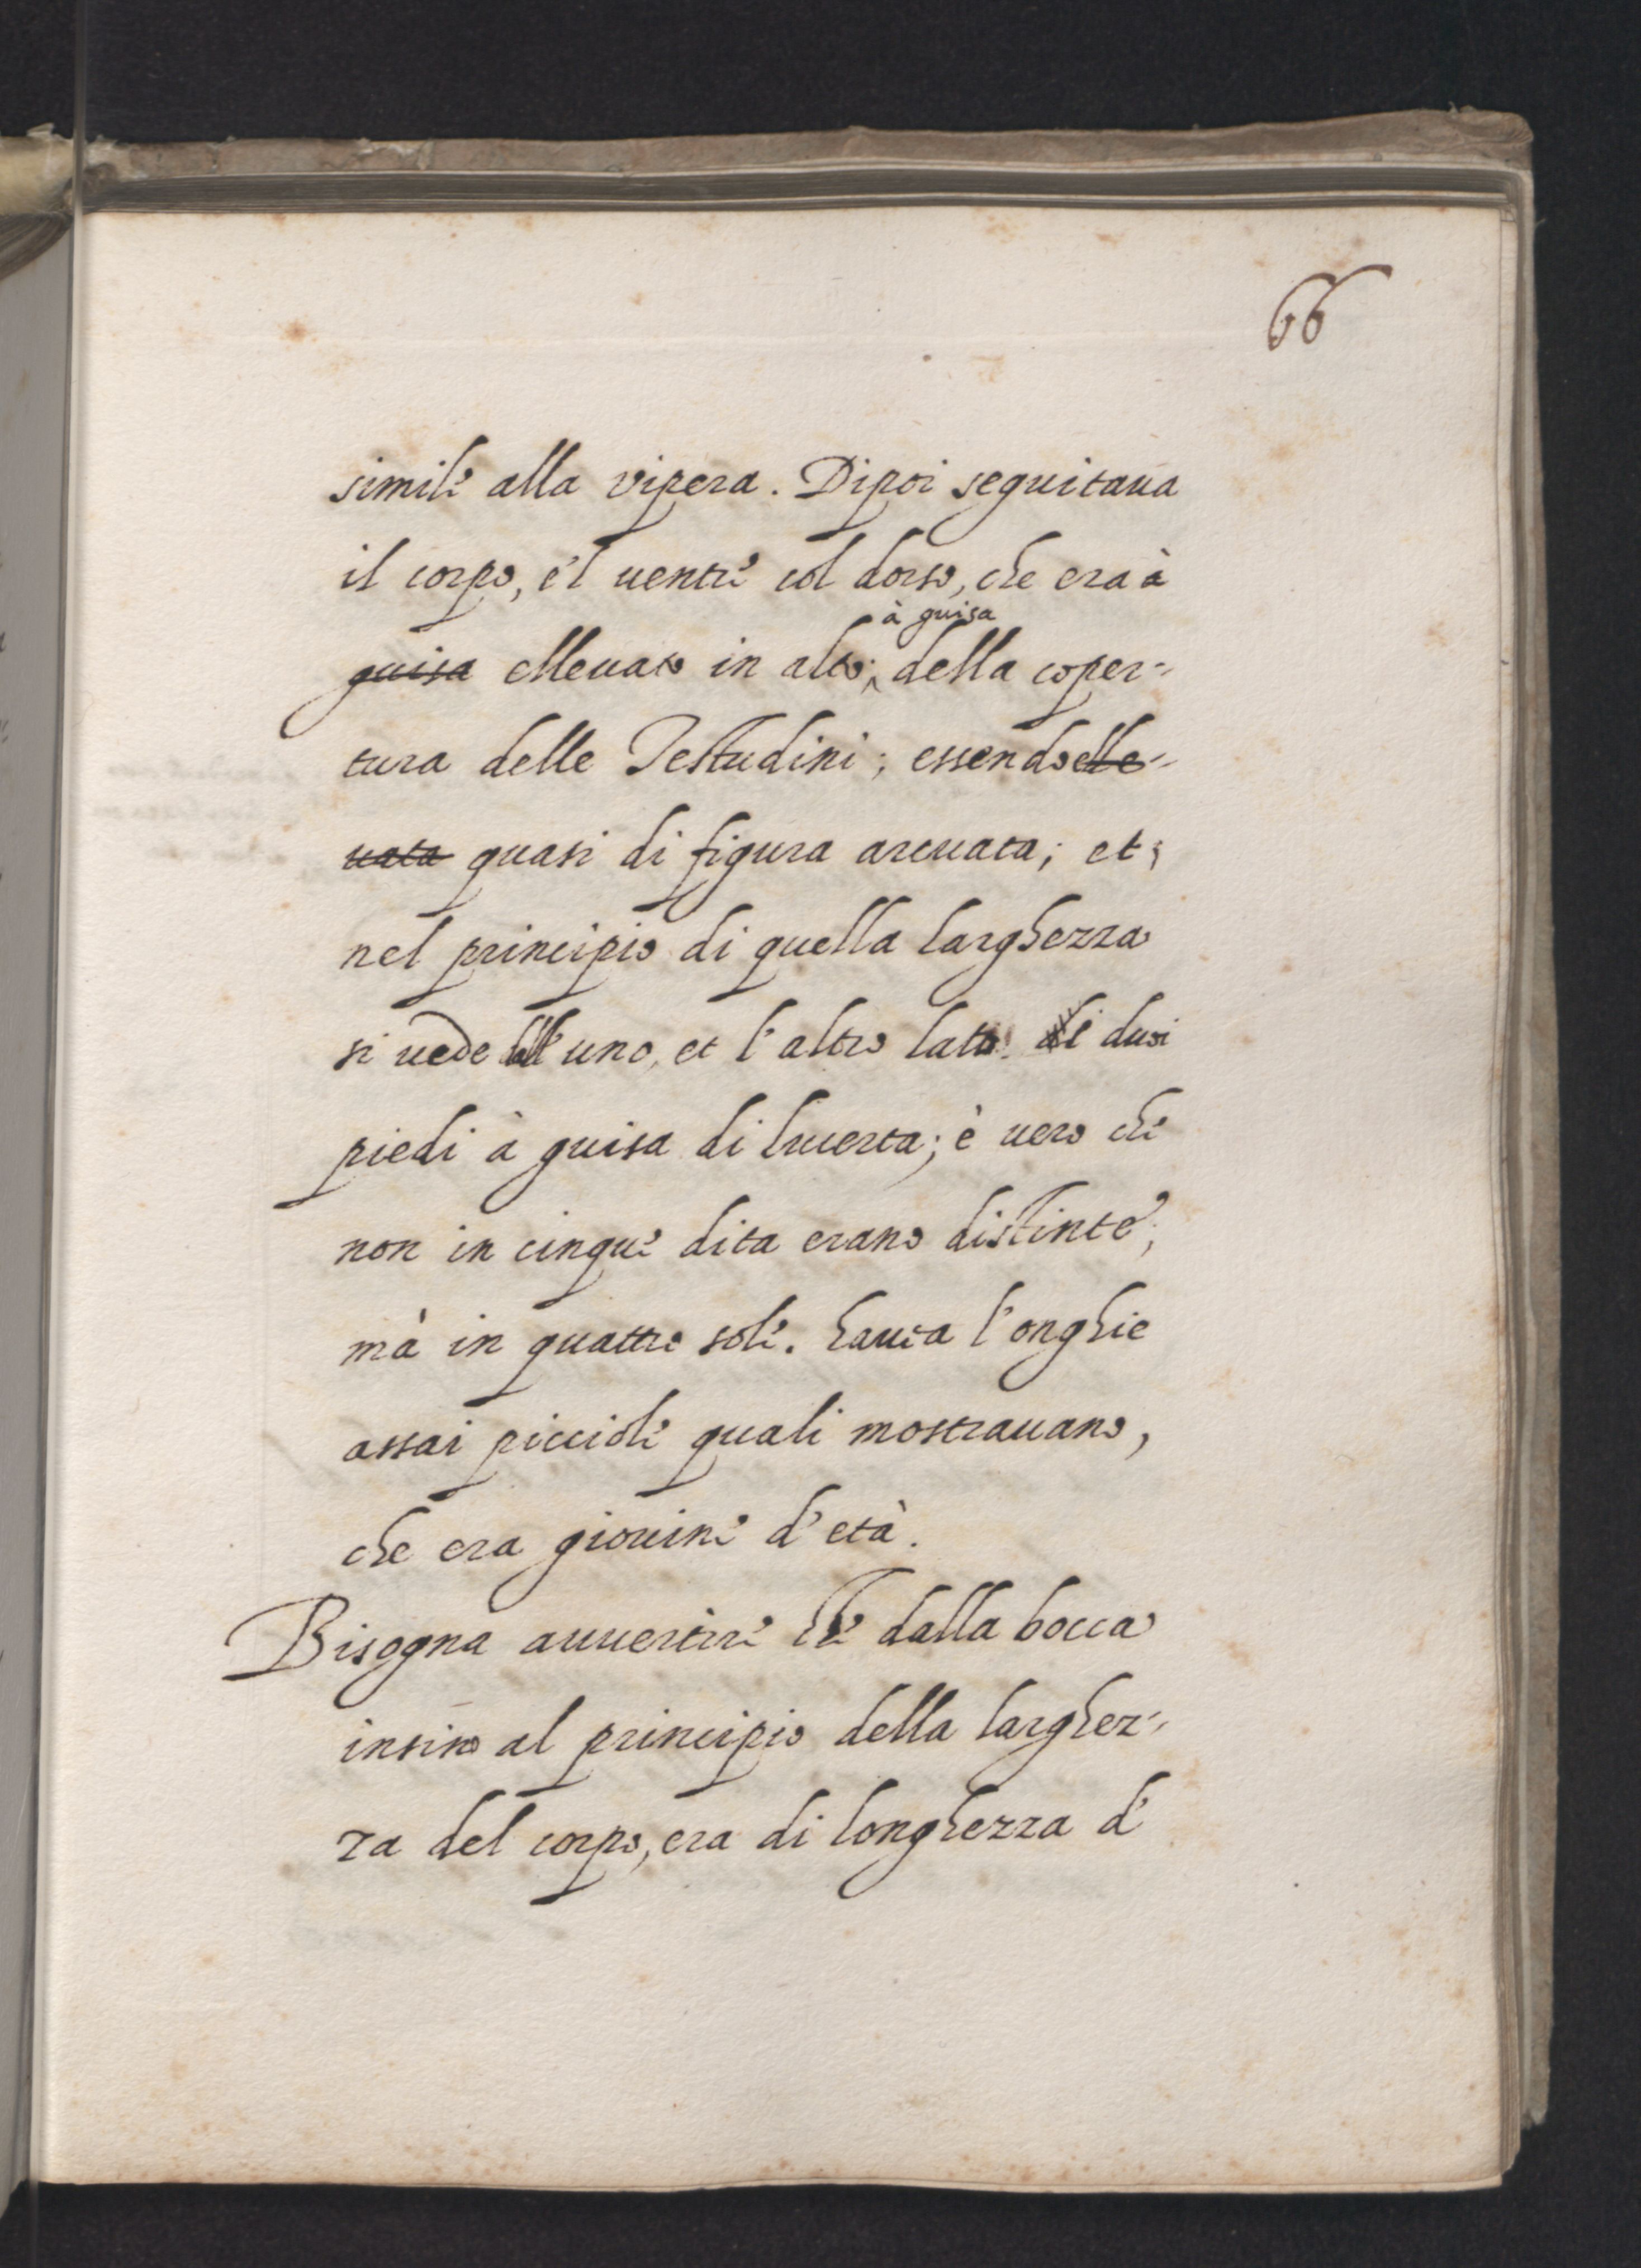 66
simile alla vipera. Dipoi seguitaua
il corpo, e'l uentre col dorso, che era à
à guisa
guisa elleuato in alto; della coper-
tura delle Testudini; essendo elle-
uata quasi di figura arcuata; et
nel principio di quella larghezza
si uede l'uno, et l'altro lato duoi
piedi à guisa di lucerta; è uero che
non in cinque dita erano distinte;
mà in quattro sole. haueua l'onghie
assai picciole quali mostrauano,
che era giouine d'età.
Bisogna auuertire che dalla bocca
insino al principio della larghez-
za del corpo, era di longhezza d'